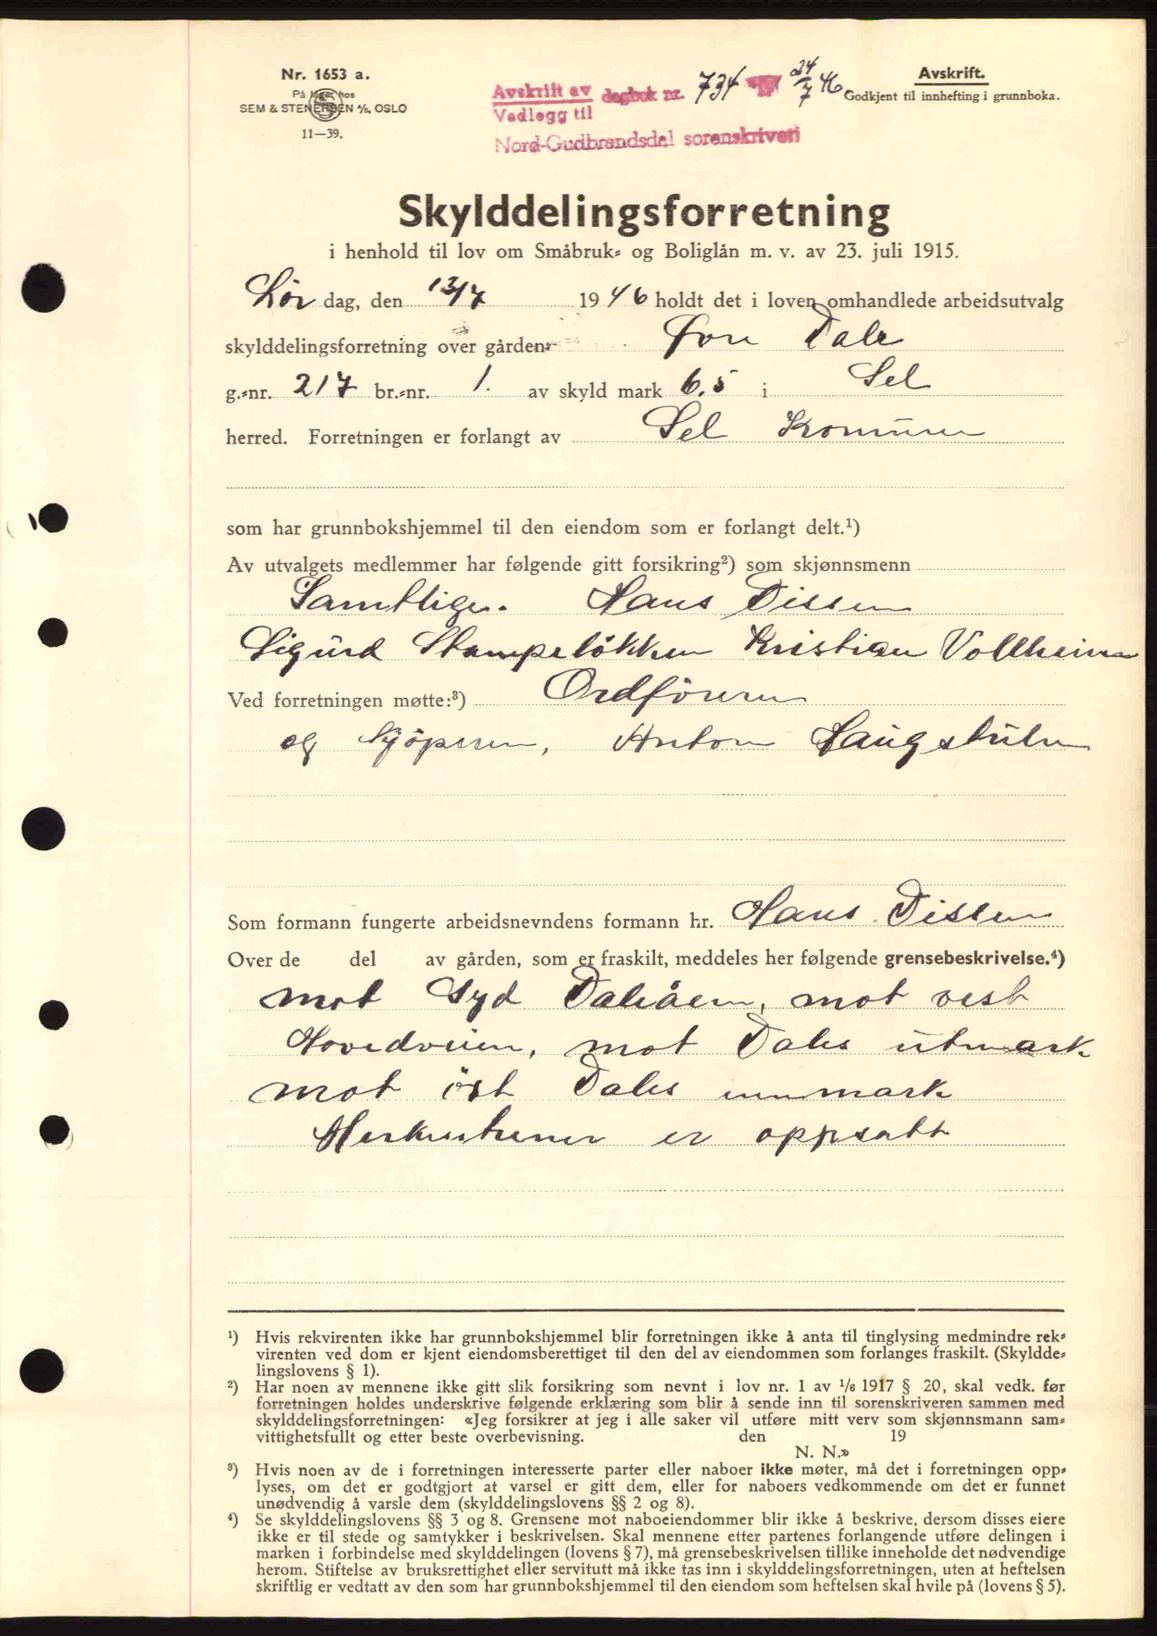 Nr. 1653 a.
På lager hos
SEM & STENERSEN A/S, OSLO
11—39.
Avskrift av dagbok nr. 734 24/7 46
Vedlegg til
Nord-Gudbrandsdal sorenskriveri
Avskrift.
Godkjent til innhefting i grunnboka.
Skylddelingsforretning
i henhold til lov om Småbruk- og Boliglån m. v. av 23. juli 1915.
Lør dag, den 13/7 1946 holdt det i loven omhandlede arbeidsutvalg
skylddelingsforretning over gården Dale
g.-nr. 217 br.-nr. 1. av skyld mark 6.5 i Sel
herred. Forretningen er forlangt av Sel Komune
som har grunnbokshjemmel til den eiendom som er forlangt delt.¹)
Av utvalgets medlemmer har følgende gitt forsikring²) som skjønnsmenn
Samtlige. Hans Tissen
Sigurd Stampeløkken Kristian Vollheim
Ved forretningen møtte:³) Ordføreren
og kjöperen, Anton Haugstulen
Som formann fungerte arbeidsnevndens formann hr. Hans Tissen
Over de del av gården, som er fraskilt, meddeles her følgende grensebeskrivelse.⁴)
mot syd Daleåen, mot vest
Hovedveien, mot Dales utmark
mot öst Dales innmark
Merkestener er oppsatt
¹) Hvis rekvirenten ikke har grunnbokshjemmel blir forretningen ikke å anta til tinglysing medmindre rek-
virenten ved dom er kjent eiendomsberettiget til den del av eiendommen som forlanges fraskilt. (Skyldde-
lingslovens § 1).
²) Har noen av mennene ikke gitt slik forsikring som nevnt i lov nr. 1 av 1/6 1917 § 20, skal vedk. før
forretningen holdes underskrive følgende erklæring som blir å sende inn til sorenskriveren sammen med
skylddelingsforretningen: «Jeg forsikrer at jeg i alle saker vil utføre mitt verv som skjønnsmann sam-
vittighetsfullt og etter beste overbevisning. den 19
N. N.»
³) Hvis noen av de i forretningen interesserte parter eller naboer ikke møter, må det i forretningen opp-
lyses, om det er godtgjort at varsel er gitt dem, eller for naboers vedkommende om det er funnet
unødvendig å varsle dem (skylddelingslovens §§ 2 og 8).
⁴) Se skylddelingslovens §§ 3 og 8. Grensene mot naboeiendommer blir ikke å beskrive, dersom disses eiere
ikke er til stede og samtykker i beskrivelsen. Skal mennene etter partenes forlangende utføre delingen i
marken i forbindelse med skylddelingen (lovens § 7), må grensebeskrivelsen tillike inneholde det nødvendige
herom. Stiftelse av bruksrettighet eller servitutt må ikke tas inn i skylddelingsforretningen, uten at heftelsen
skriftlig er vedtatt av den som har grunnbokshjemmel til den eiendom som heftelsen skal hvile på (lovens § 5).